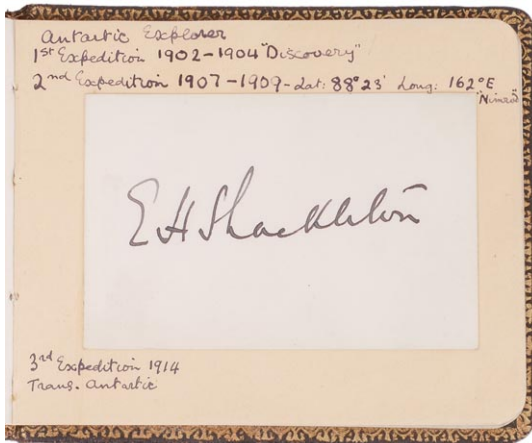 Antartic Explorer
1st Expedition 1902-1904 "Discovery"
2nd Expedition 1907-1909 - Lat: 88° 23' Long: 162° E
"Nimrod"
E H Shackleton
3rd Expedition 1914
Trans. Antartic